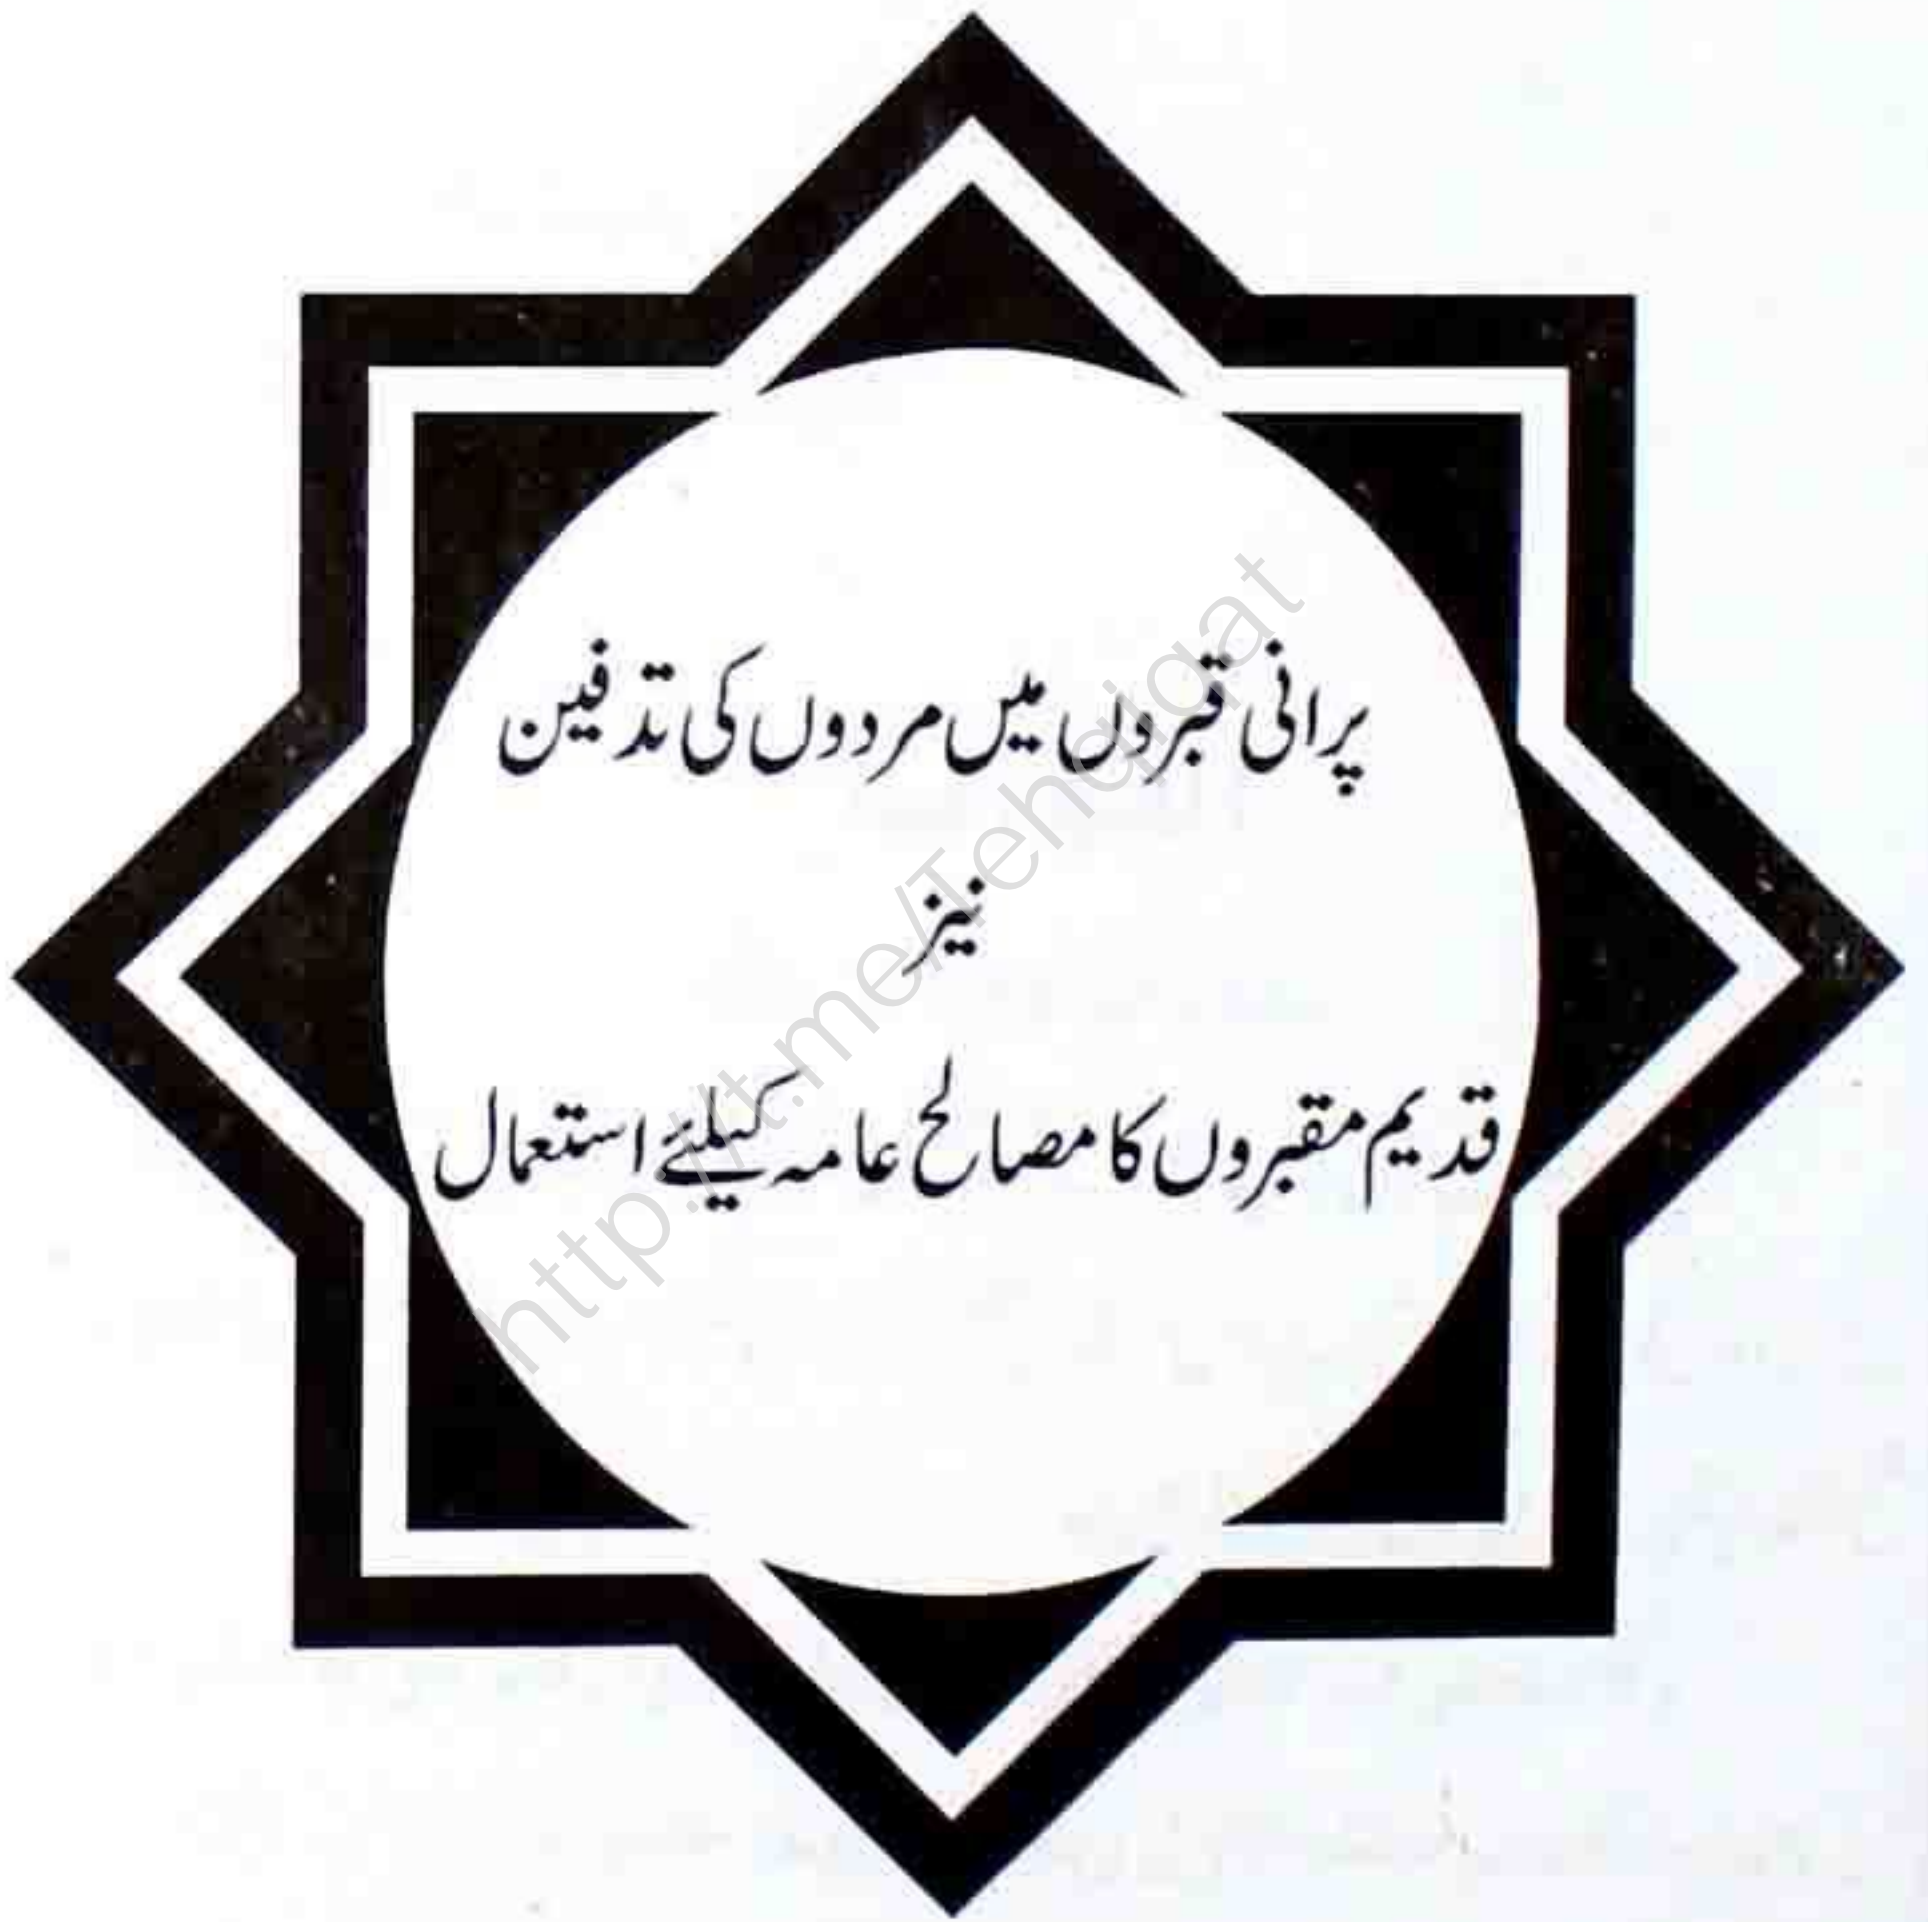 پرانی قبروں میں مردوں کی تدفین
نیز
قدیم مقبروں کا مصالح عامہ کیلئے استعمال
http://t.me/Tehqiqat